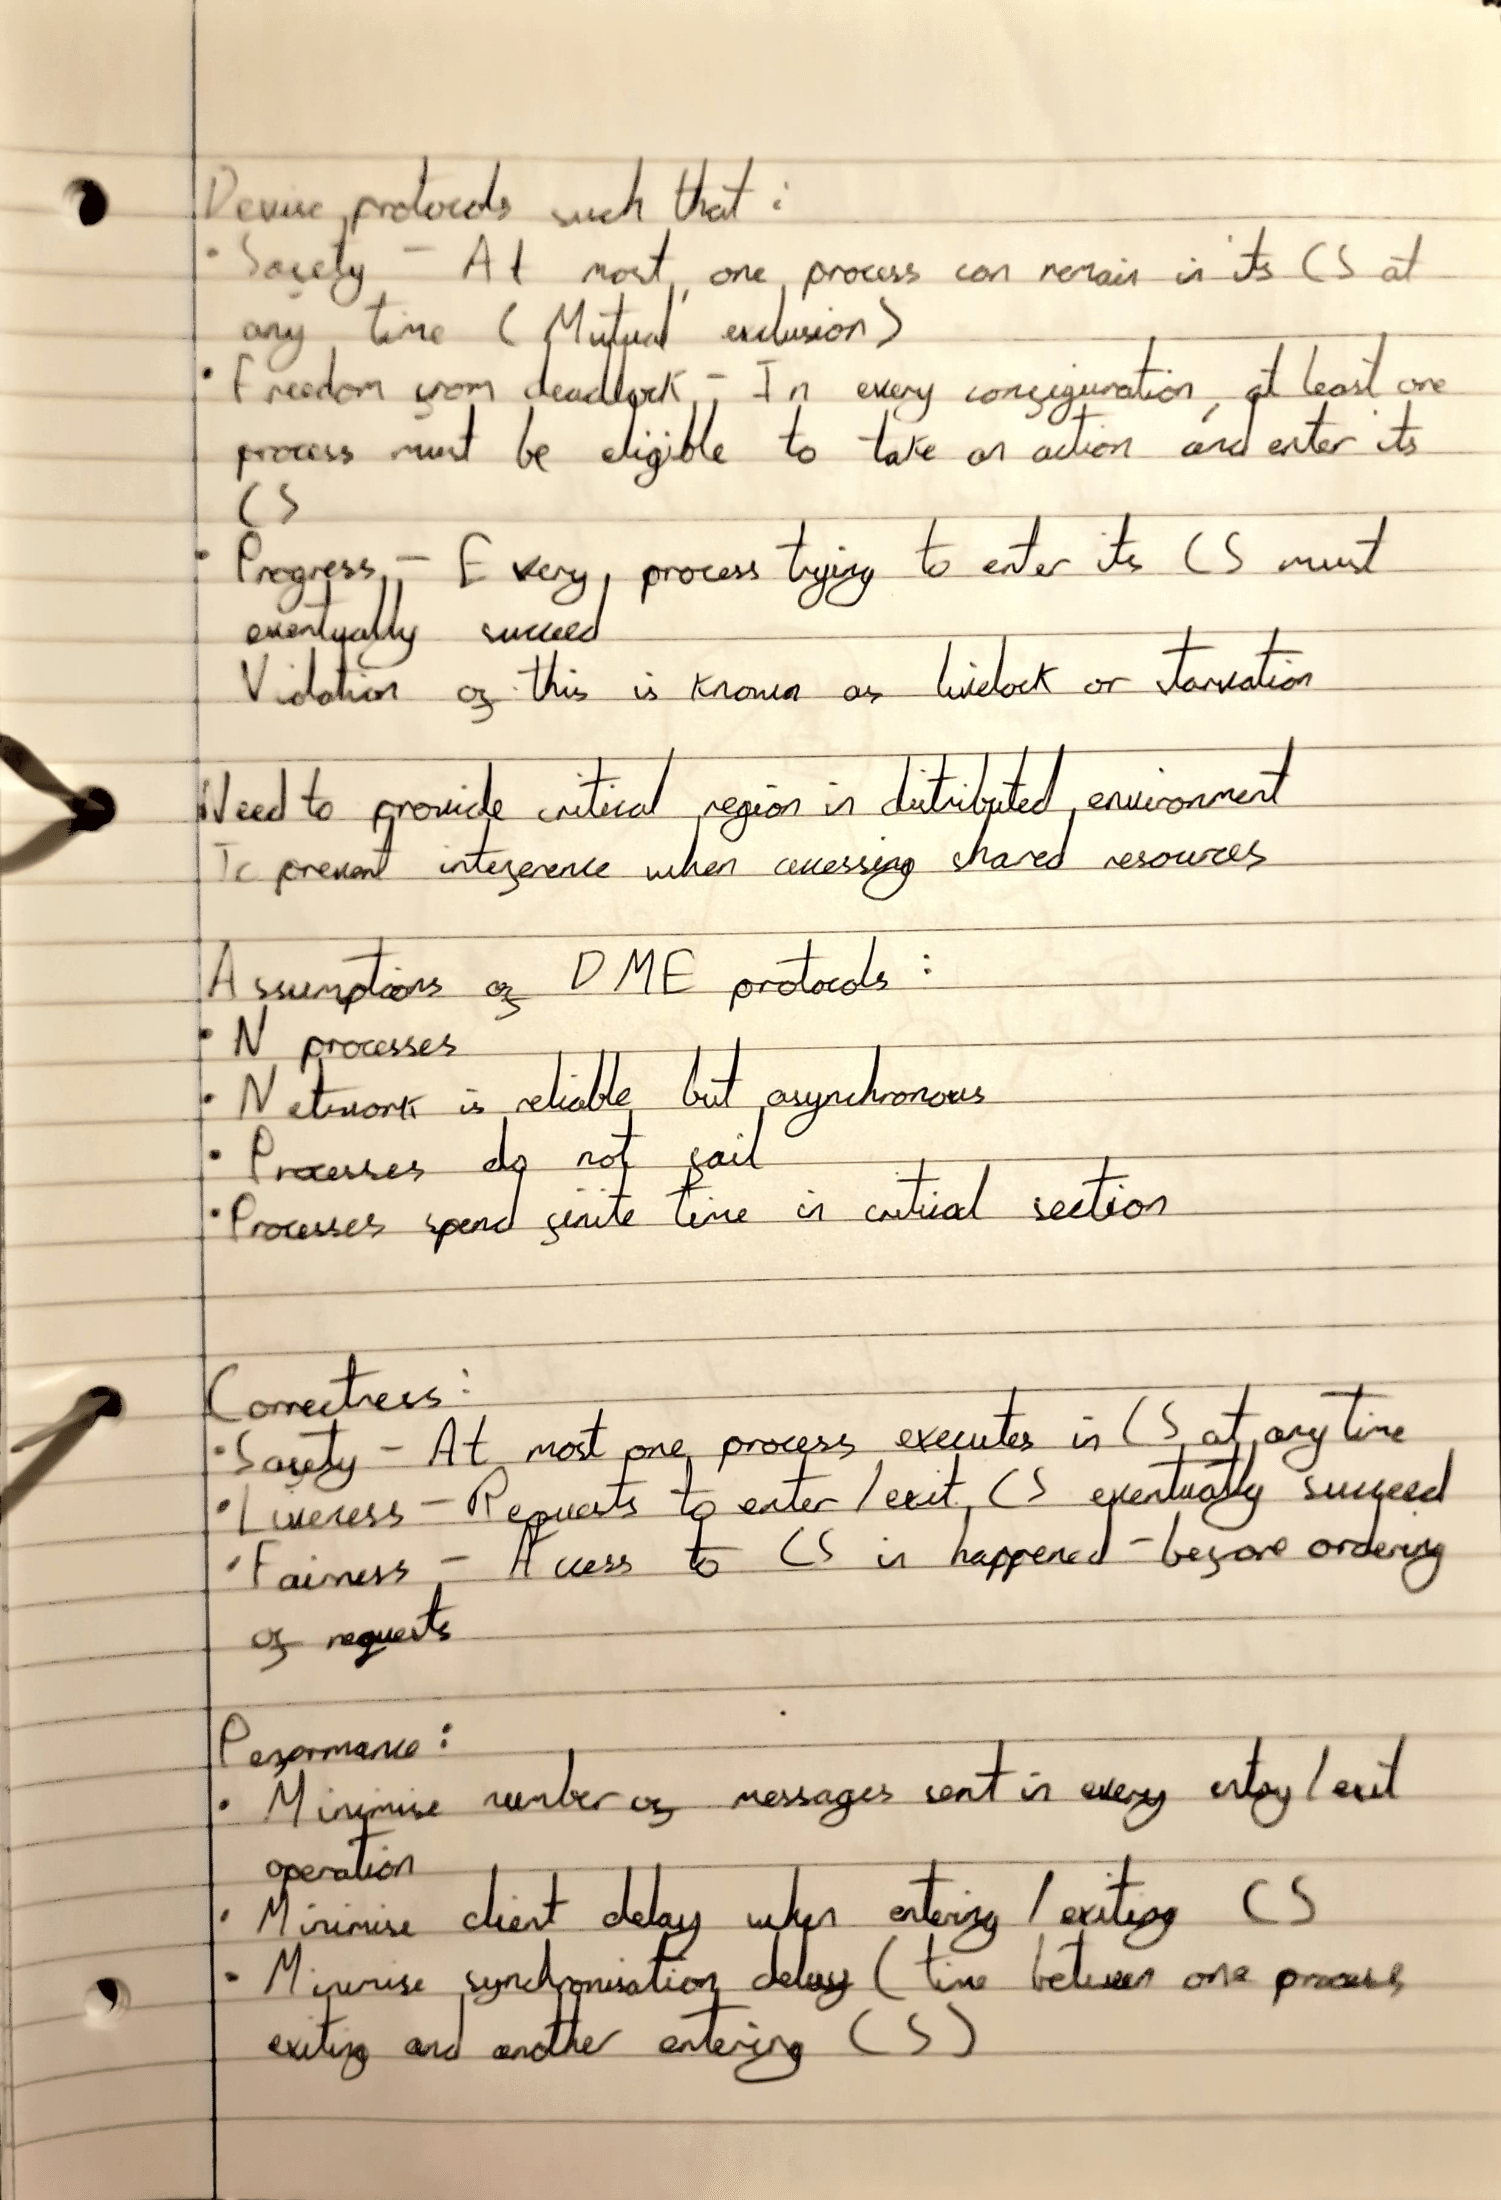 Devise protocols such that :
• Safety - At most one process can remain in its CS at
any time (Mutual exclusion)
• Freedom from deadlock - In every configuration, at least one
process must be eligible to take an action and enter its
CS
• Progress - Every process trying to enter its CS must
eventually succeed
Violation of this is known as livelock or starvation
Need to provide critical region in distributed environment
To prevent interference when accessing shared resources
Assumptions of DME protocols :
• N processes
• Network is reliable but asynchronous
• Processes do not fail
• Processes spend finite time in critical section
Correctness :
• Safety - At most one process executes in CS at any time
• Liveness - Requests to enter / exit CS eventually succeed
• Fairness - Access to CS in happened - before ordering
of requests
Performance :
• Minimise number of messages sent in every entry / exit
operation
• Minimise client delay when entering / exiting CS
• Minimise synchronisation delay (time between one process
exiting and another entering CS)